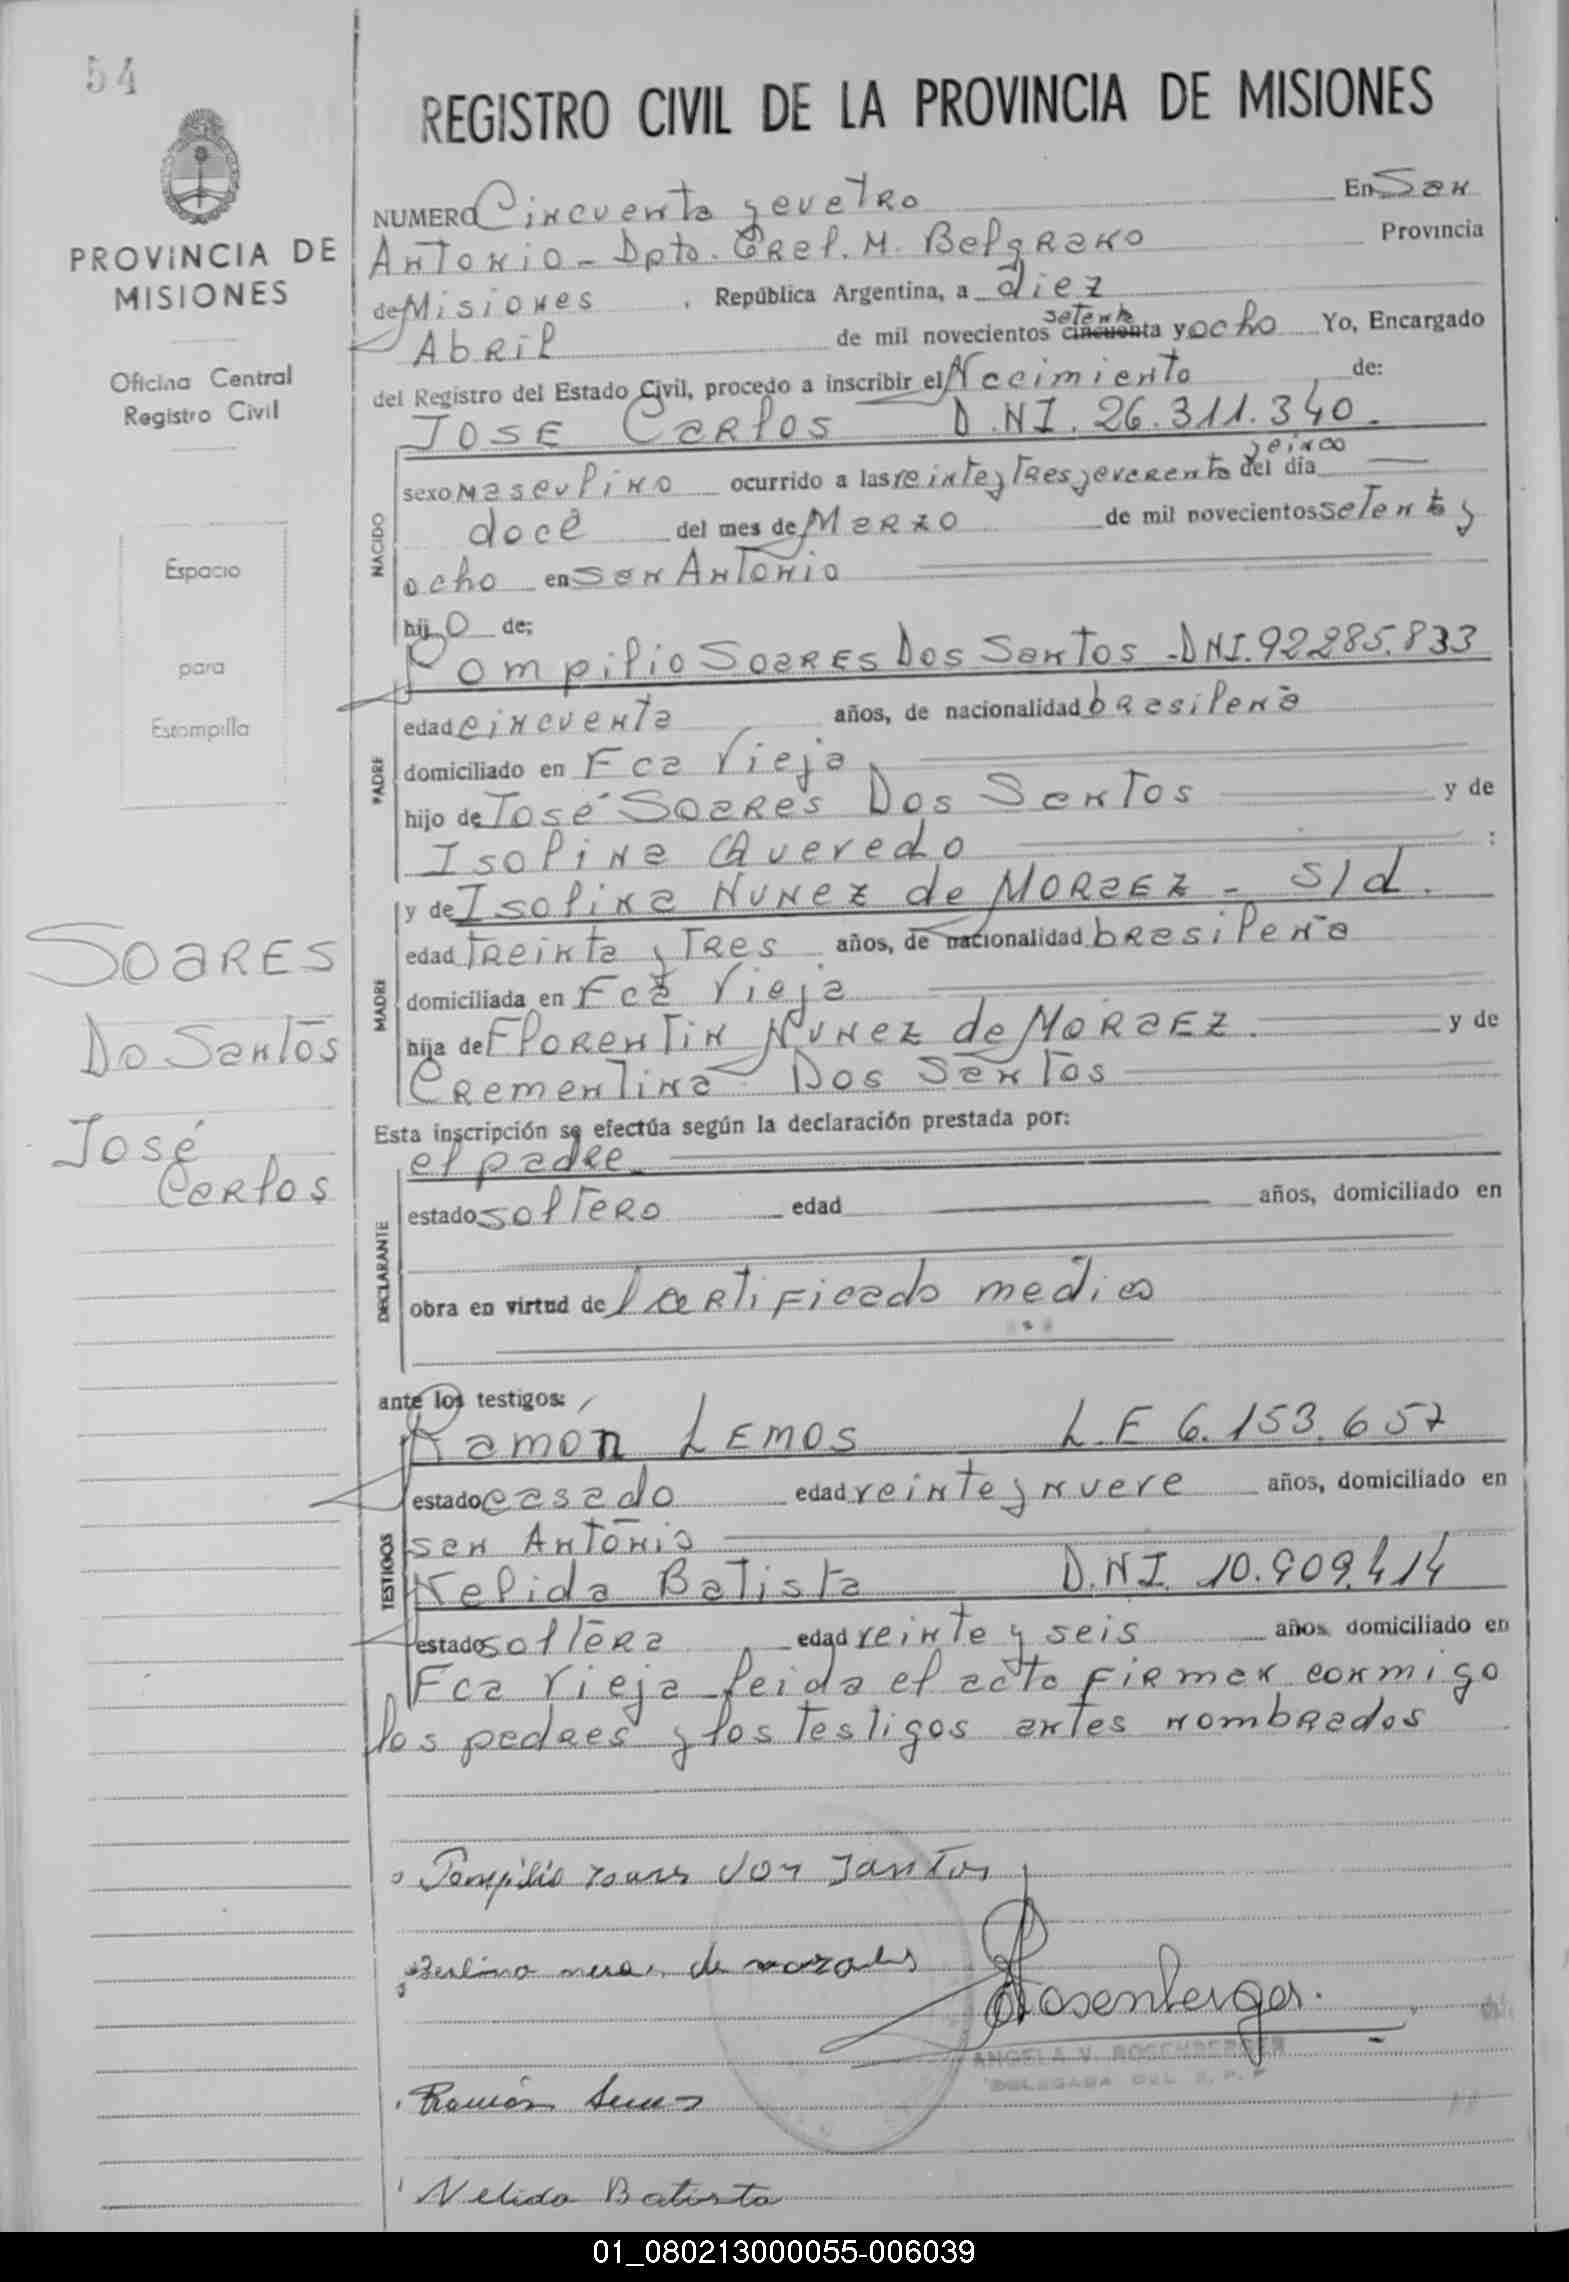 54
REGISTRO CIVIL DE LA PROVINCIA DE MISIONES
PROVINCIA DE
MISIONES
Oficina Central
Registro Civil
Espacio
para
Estampilla
SOARES
Do Santos
José
Carlos
NUMERO Cincuenta y cuatro En San
Antonio - Dpto. Gral. M. Belgrano Provincia
de Misiones , República Argentina, a diez
setenta
Abril de mil novecientos cincuenta y ocho Yo, Encargado
del Registro del Estado Civil, procedo a inscribir el Nacimiento de:
JOSE Carlos D.NI. 26.311.340.
y cinco
sexo masculino ocurrido a las veinte y tres y cuarenta del día
doce del mes de Marzo de mil novecientos setenta y
ocho en San Antonio
NACIDO
hijo de:
Pompilio SOARES Dos Santos - DNI. 92285.833
edad cincuenta años, de nacionalidad brasileña
domiciliado en Fca Vieja
PADRE
hijo de José Soares Dos Santos y de
Isolina Quevedo :
y de Isolina NUNEZ de MORAEZ - S/d.
edad treinta y tres años, de nacionalidad brasileña
domiciliada en Fca Vieja
MADRE
hija de Florentin Nunez de MORAEZ. y de
Crementina Dos Santos
Esta inscripción se efectúa según la declaración prestada por:
el padre
estado soltero edad años, domiciliado en
DECLARANTE
obra en virtud de certificado medico
ante los testigos:
Ramon LEMOS L.E 6.153.657
estado casado edad veinte y nueve años, domiciliado en
San Antonio
TESTIGOS
Nelida Batista D.NI. 10.909.414
estado soltera edad veinte y seis años, domiciliado en
Fca Vieja leida el acta firman conmigo
los padres y los testigos antes nombrados
Pompilio soares dos santos
de morales
Rosenberger.
ANGELA V. ROSENBERGER
DELEGADA DEL R.P.P
Ramón Lemos
Nelida Batista
01_080213000055-006039